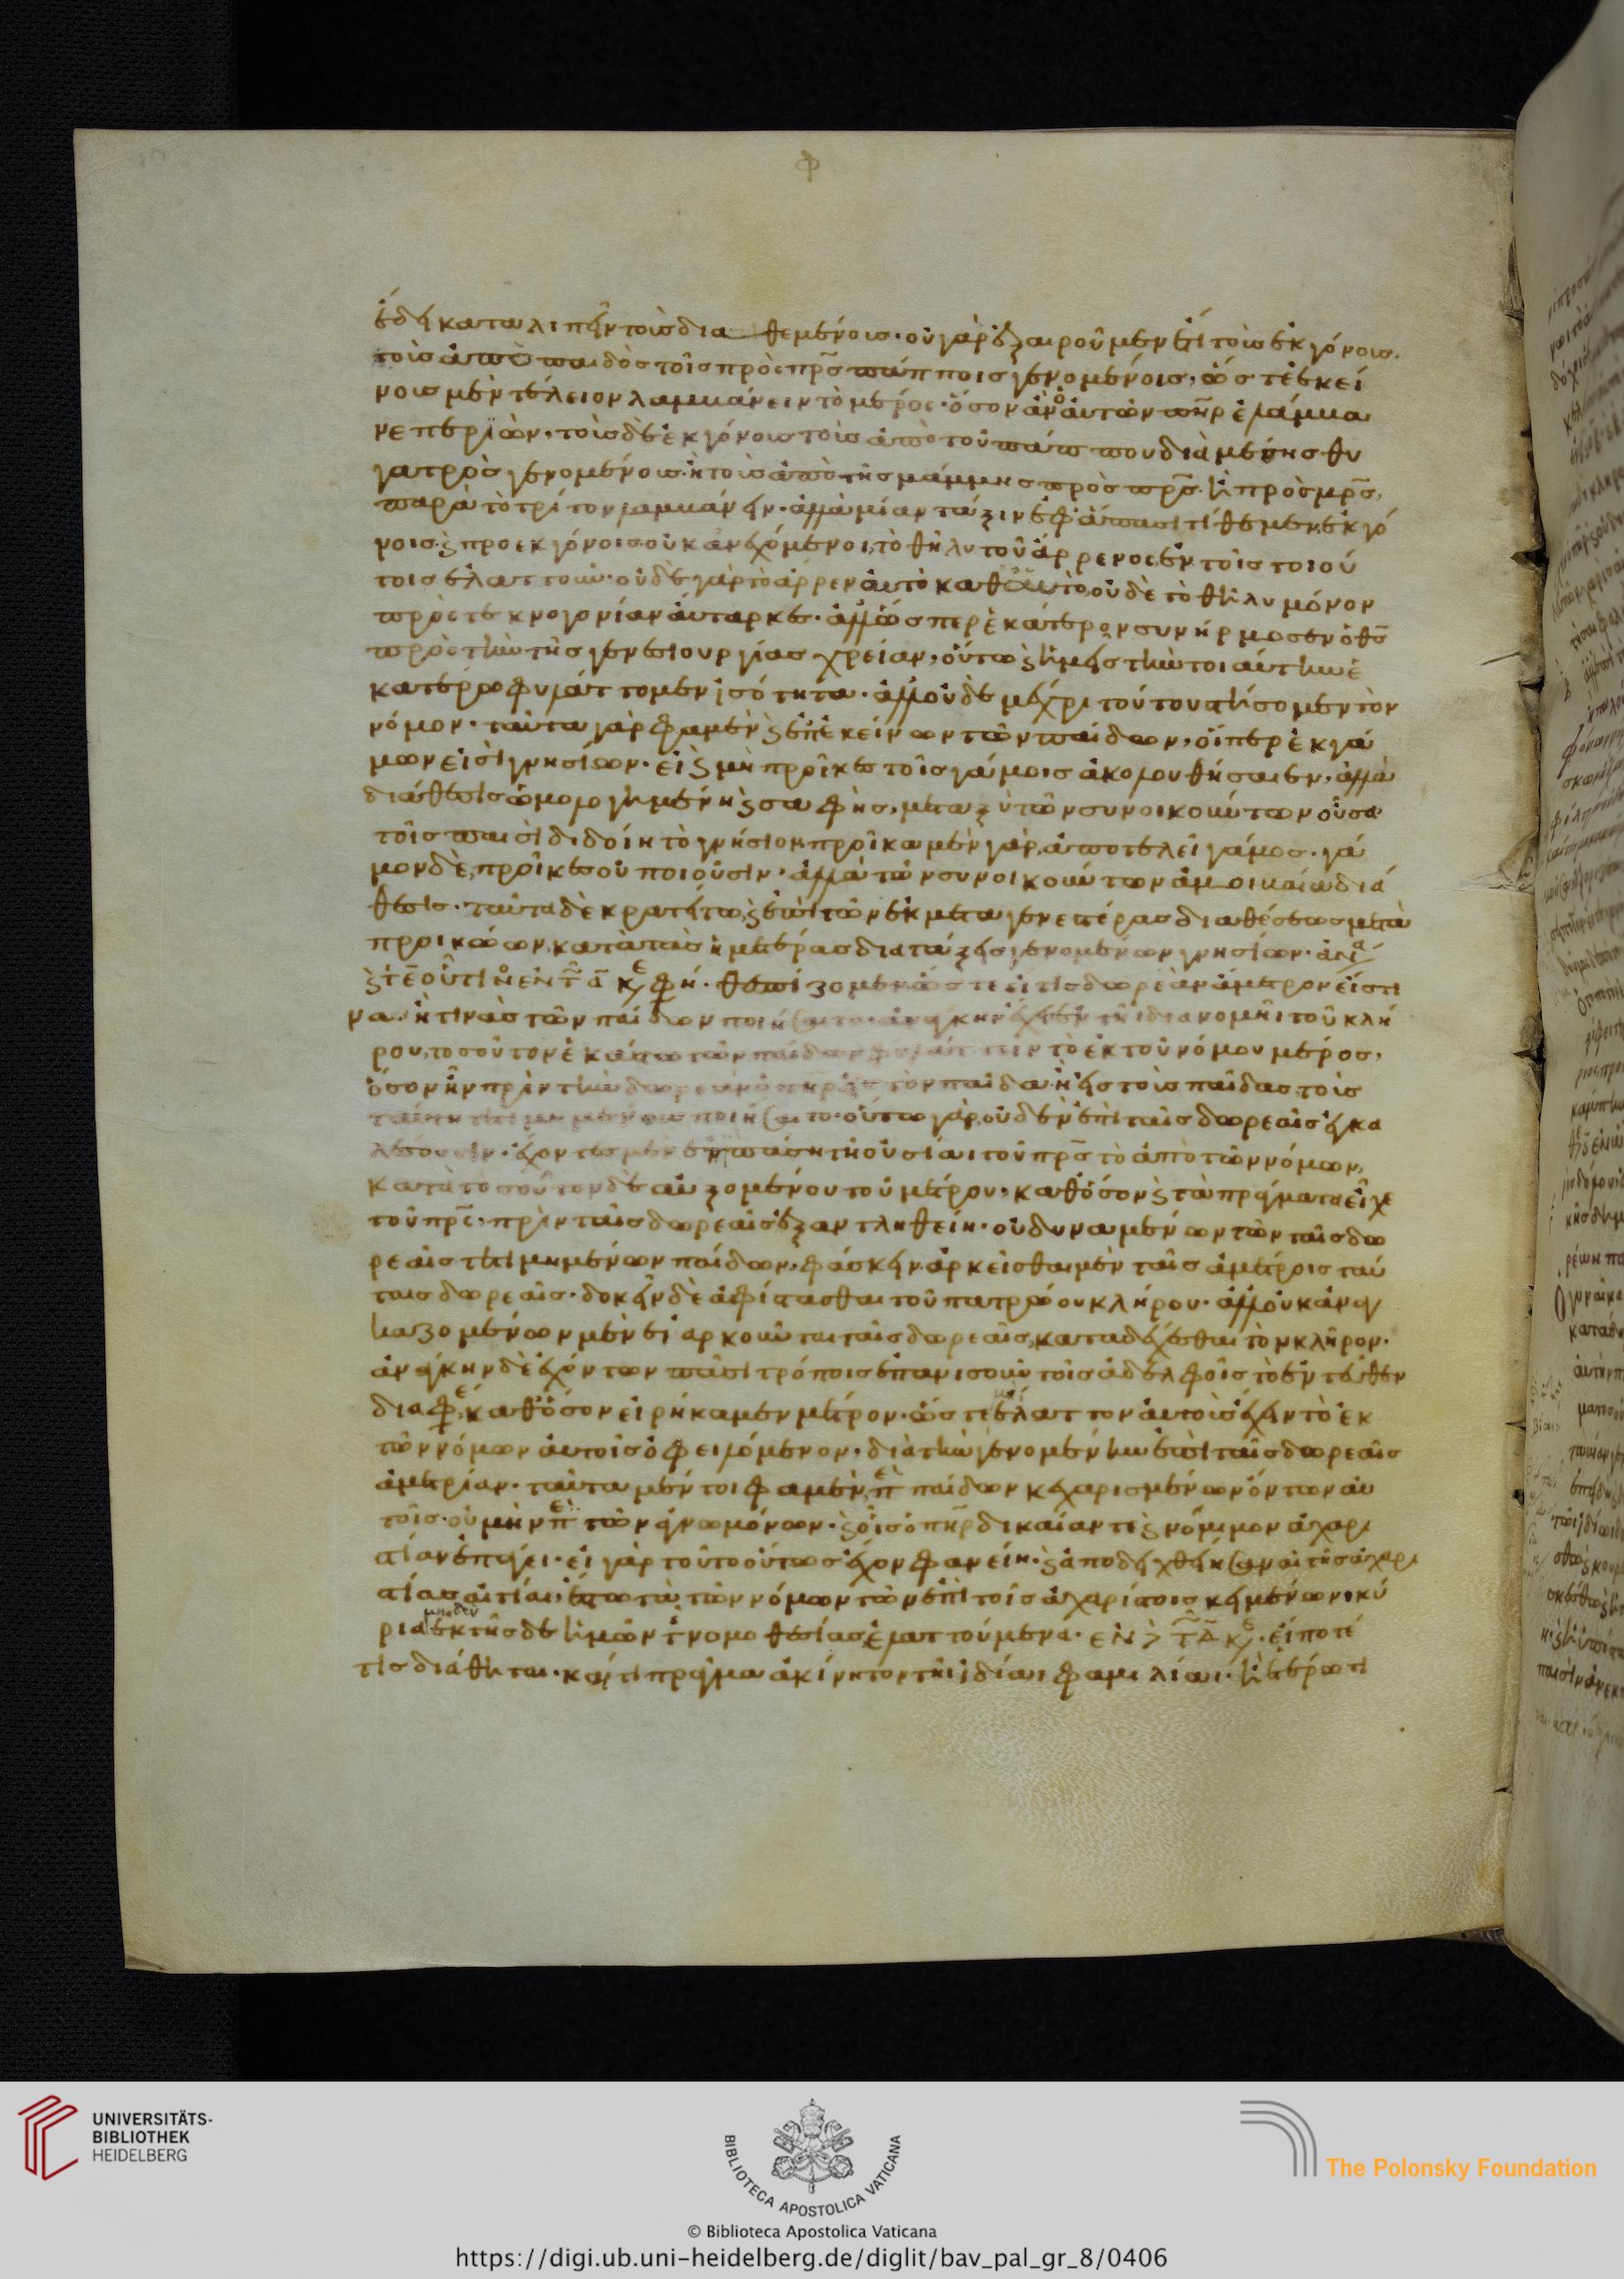 φ
ἔδει καταλιπεῖν τοῖς διαθεμένοις· οὐ γὰρ ἐξαιροῦμεν ἔτι τοῖς ἐκγόνοις·
τοῖς ἀπὸ παιδὸς τοῖς πρὸς πρς πάπποις γενομένοις, ὥστε ἐκεί
νοις μὲν τέλειον λαμβάνειν τὸ μέρος· ὅσον ἂν ὁ αὐτῶν πηρ ἐλάμβα
νε περιών, τοῖς δὲ ἐκγόνοις τοῖς ἀπὸ τοῦ πάππου διὰ μέσης θυ
γατρὸς γενομένοις· ἢ τοῖς ἀπὸ τῆς μάμμης πρὸς πρς· ἢ πρὸς μρς,
παρὰ τὸ τρίτον λαμβάνειν· ἀλλὰ μίαν τάξιν ἐφ' ἅπασι τίθεμεν, ἐκγό
νοις ϛ προεκγόνοις οὐκ ἀνεχόμενοι, τὸ θῆλυ τοῦ ἄρρενος ἐν τοῖς τοιού
τοις ἐλαττοῦν· οὐδὲ γὰρ τὸ ἄρρεν αὐτὸ καθ' ἑαυτὸ, οὐδὲ τὸ θῆλυ μόνον
πρὸς τεκνογονίαν αὔταρκες· ἀλλ' ὥσπερ ἑκάτερον συνήρμοσεν ὁ θς
πρὸς τὴν τῆς γενεσιουργίας χρείαν, οὕτω ϛ ἡμεῖς τὴν τοιαύτην ἑ
κατέρῳ φυλάττομεν ἰσότητα· ἀλλ' οὐδὲ μέχρι τούτου στήσομεν τὸν
νόμον· ταῦτα γὰρ φαμὲν ϛ ἐπ' ἐκείνων τῶν παίδων, οἵπερ ἐκ γά
μων εἰσὶ γνησίων· εἰ ϛ μὴ προῖκες τοῖς γάμοις ἀκολουθήσαιεν, ἀλλὰ
διάθεσις ὡμολογημένη ϛ σαφὴς, μεταξὺ τῶν συνοικούντων οὖσα
τοῖς παισὶ διδοίη τὸ γνήσιον· προῖκα μὲν γὰρ, ἀποτελεῖ γάμος· γά
μον δὲ, προῖκες οὐ ποιοῦσιν· ἀλλὰ τῶν συνοικούντων ἀμοιβαίως διά
θεσις· ταῦτα δὲ κρατείτω, ϛ ἐπὶ τῶν ἐκ μεταγενεστέρας διαθέσεως μετὰ
προικῴων, κατὰ τὰς ἡμετέρας διατάξεις γενομένων γνησίων·
ϛ τεοῦ τι
θεσπίζομεν ὥστε εἴ τις δωρεὰν ἄμετρον εἴς τι
να ἢ τινὰς τῶν παίδων ποιήσαιτο· ἀνάγκην ἔχειν ἐν τῆι διανομῆι τοῦ κλή
ρου, τοσοῦτον ἑκάστῳ τῶν παίδων φυλάττειν τὸ ἐκ τοῦ νόμου μέρος,
ὅσον ἦν πρὶν τὴν δωρεὰν ὁ πηρ εἰς τὸν παῖδα ἢ εἰς τοὺς παῖδας, τοὺς
ταύτηι τετιμημένους ποιήσαιτο· οὕτω γὰρ, οὐδὲν ἐπὶ ταῖς δωρεαῖς ἐγκα
λέσουσιν· ἔχοντες μὲν ἐν πάσηι τῆι οὐσίαι τοῦ πρς τὸ ἀπὸ τῶν νόμων,
κατὰ τοσοῦτον δὲ αὐξομένου τοῦ μέτρου, καθ' ὅσον ϛ τὰ πράγματα εἶχε
τοῦ πρς, πρὶν ταῖς δωρεαῖς ἐξαντληθείη· οὐ δυναμένων τῶν ταῖς δω
ρεαῖς τετιμημένων παίδων, φάσκειν ἀρκεῖσθαι μὲν ταῖς ἀμέτροις ταύ
ταις δωρεαῖς· δοκεῖν δὲ ἀφίστασθαι τοῦ πατρῴου κλήρου· ἀλλ' οὐκ ἀναγ
καζομένων μὲν εἰ ἀρκοῦνται ταῖς δωρεαῖς, καταδέχεσθαι τὸν κλῆρον·
ἀνάγκην δὲ ἐχόντων πᾶσι τρόποις ἐπανισοῦν τοῖς ἀδελφοῖς τὸ ἐντεῦθεν
διαφ, καθ' ὅσον εἰρήκαμεν μέτρον· ὥστε μὴ ἔλαττον αὐτοῖς ἔχειν τὸ ἐκ
τῶν νόμων αὐτοῖς ὀφειλόμενον· διὰ τὴν γενομένην ἐπὶ ταῖς δωρεαῖς
ἀμετρίαν· ταῦτα μέντοι φαμὲν ἐπὶ παίδων κεχαρισμένων ὄντων αὐ
τοῖς· οὐ μὴν ἐπὶ τῶν ἀγνωμόνων· ϛ οἷς ὁ πηρ δικαίαν τε ϛ νόμιμον ἀχαρι
στίαν ἐπάγει· εἰ γὰρ τοῦτο οὕτως ἔχον φανείη· ϛ ἀποδειχθείησαν αἱ τῆς ἀχαρι
στίας αἰτίαι, ἔστω τὰ τῶν νόμων τῶν ἐπὶ τοῖς ἀχαρίστοις κειμένων κύ
ρια μηδὲν ἐκ τῆσδε ἡμῶν τ νομοθεσίας ἐλαττούμενα· εἴ ποτέ
τις διάθηται· καί τι πρᾶγμα ἀκίνητον τῆι ἰδίαι φαμιλίαι· ἢ ἑτέρῳ τι
UNIVERSITÄTS-
BIBLIOTHEK
HEIDELBERG
BIBLIOTECA APOSTOLICA VATICANA
The Polonsky Foundation
© Biblioteca Apostolica Vaticana
https://digi.ub.uni-heidelberg.de/diglit/bav_pal_gr_8/0406